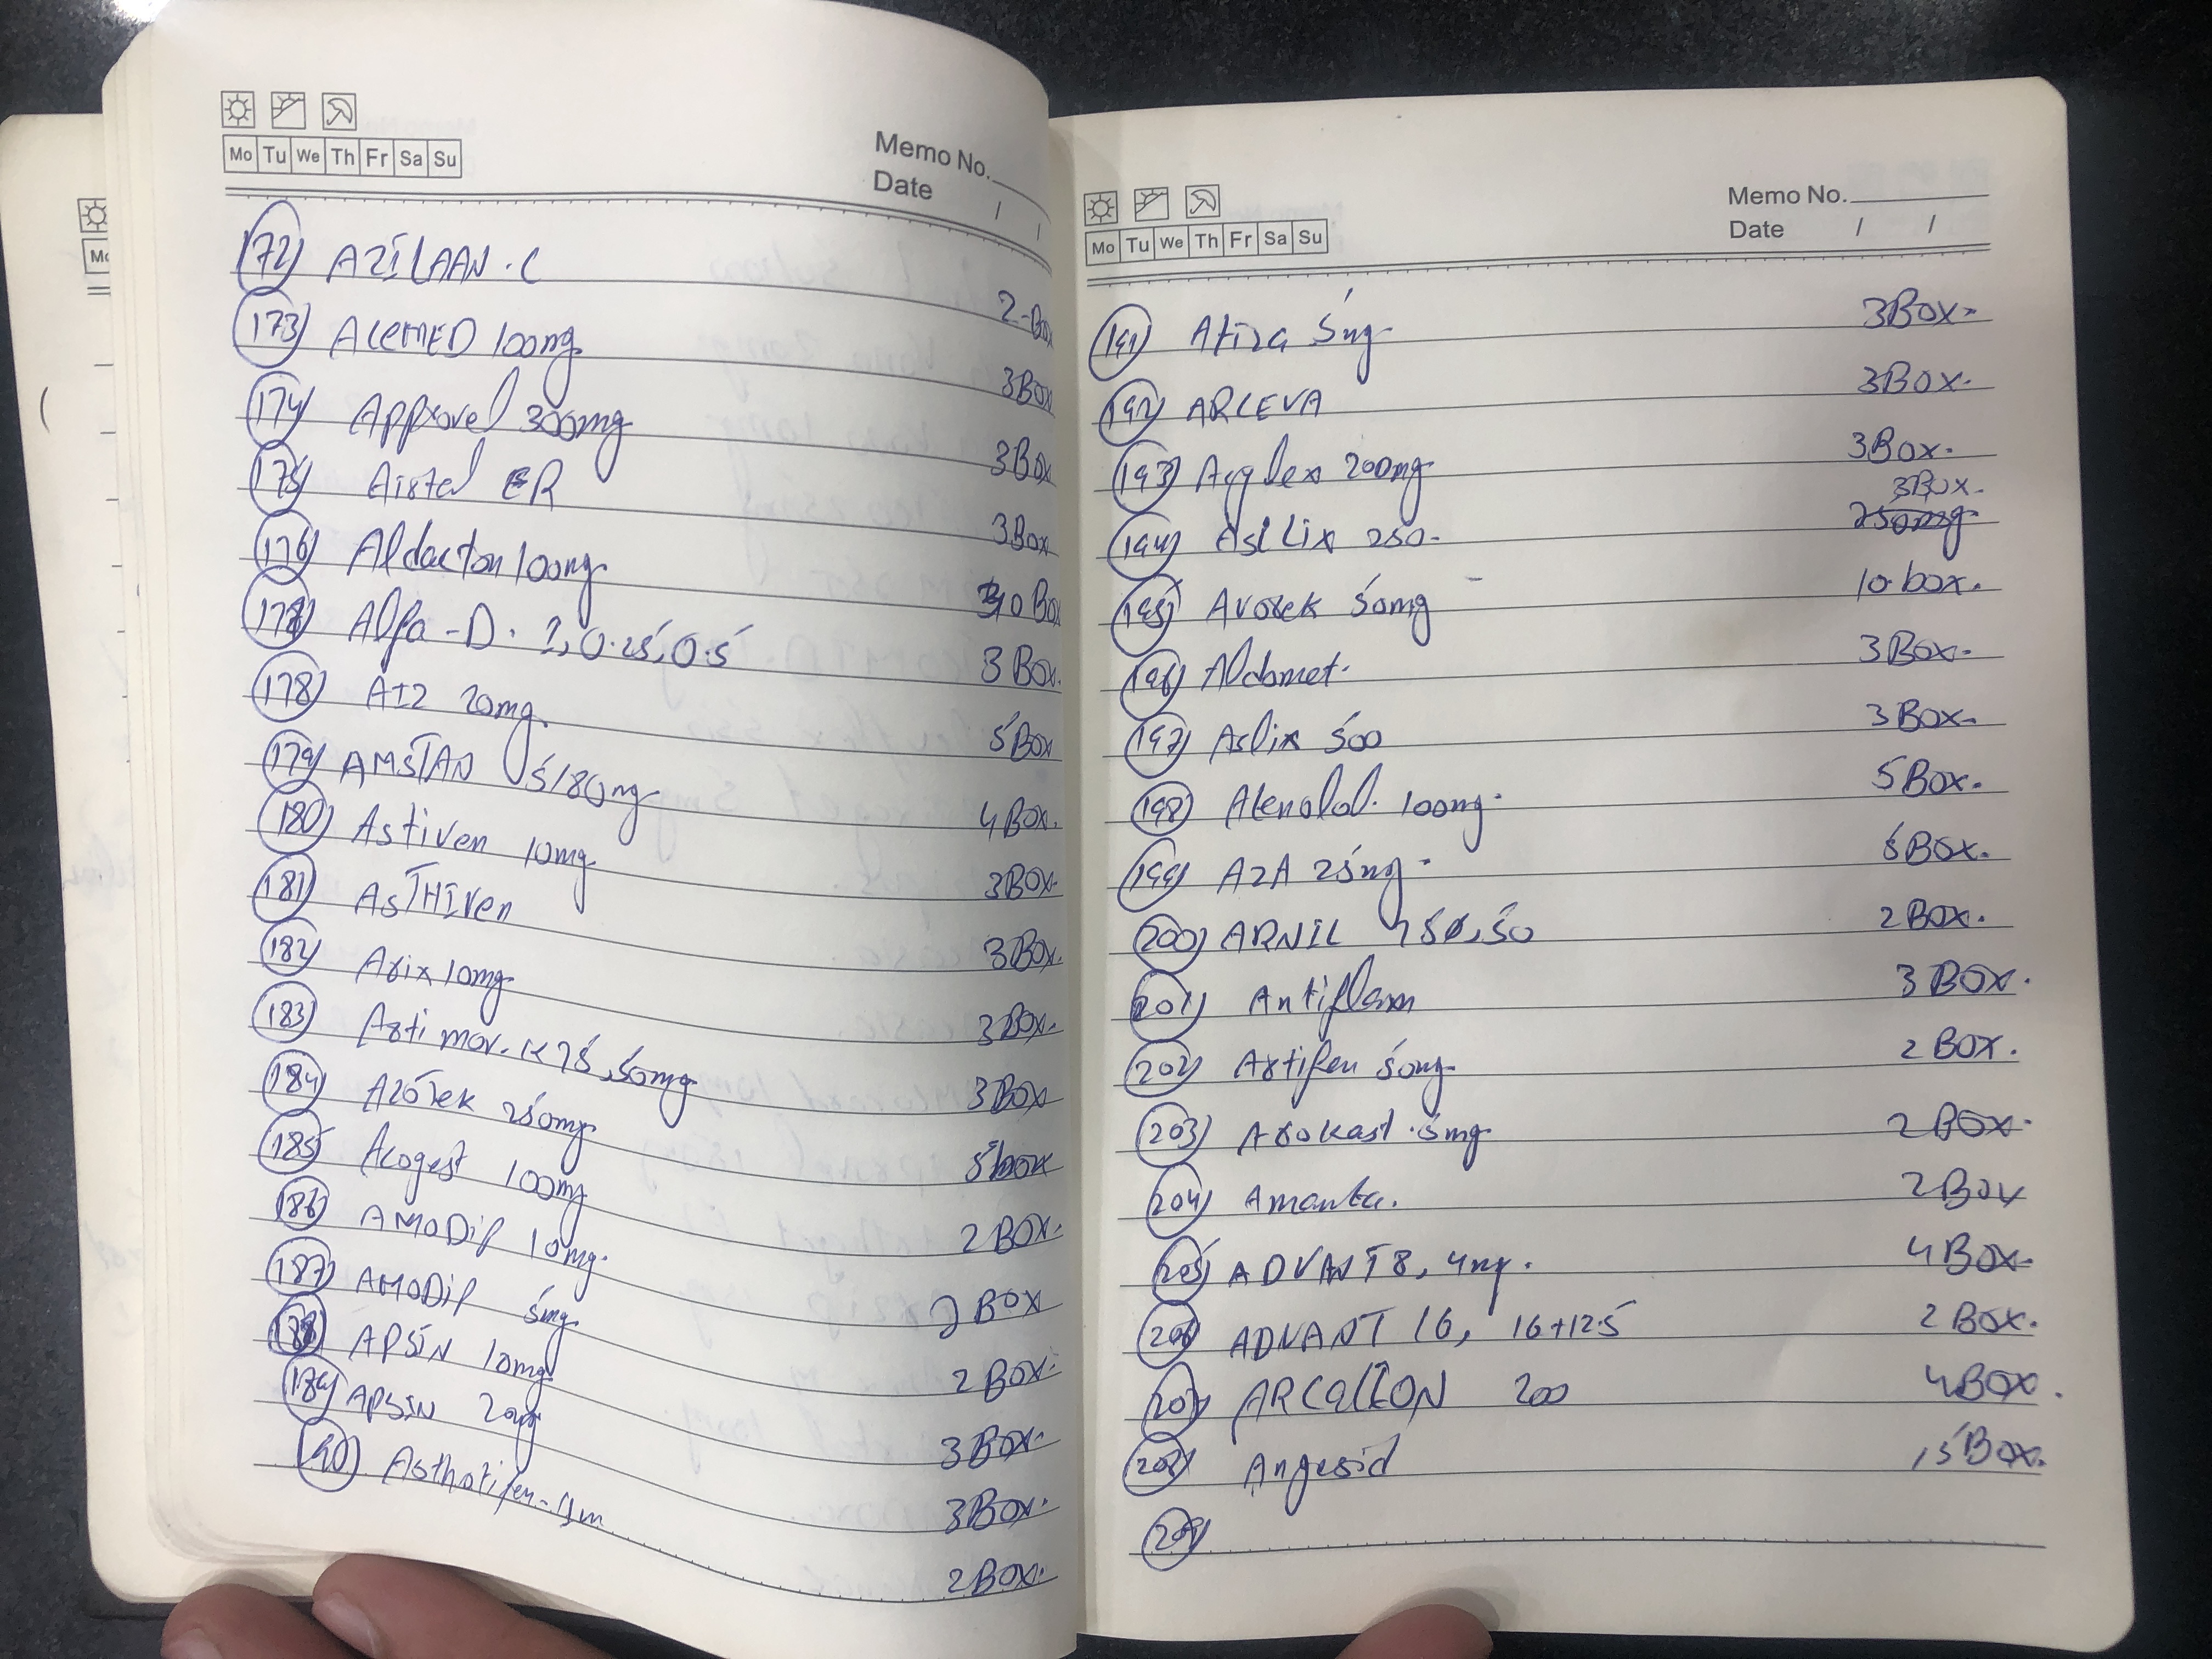 Mo Tu We Th Fr Sa Su
Memo No.
Date / /
172) AZILAAN.C 2-Box
173) ACEMED 100mg 3Box
174) Approvel 300mg 3Box
175) Airtal ER 3Box
176) Aldacton 100mg 10 Box
178) Alfa-D. 1, 0.25, 0.5 3 Box.
178) AIZ 20mg. 5Box
179) AMSTAN 5/80mg 4Box.
180) Astiven 10mg 3Box.
181) ASTHIVen 3Box.
182) Arix 10mg 3Box.
183) Arti mov. K 75, 50mg 3Box
184) AZOTEK 250mg 5box
185) Acogest 100mg 2 BOX.
186) AMODIP 10mg. 2 BOX
187) AMODIP 5mg 2 BOX.
188) APSIN 10mg 3Box.
189) APSIN 2mg 3Box.
190) Asthotifen- 2Box.
Mo Tu We Th Fr Sa Su
Memo No.
Date / /
191) Atiza 5mg 3Box.
192) ARCEVA 3Box.
193) Agglex 200mg 3Box.
194) Aslix 250. 3Box.
250mg
195) Avorek 50mg 10 box.
196) Aldomet. 3Box.
197) Aslix 500 3Box.
198) Atenolol. 100mg. 5Box.
199) AZA 25mg. 5Box.
200) ARNIL 75, 50 2Box.
201) Antiflam 3 BOX.
202) Artifen 50mg 2 BOX.
203) Arokast 5mg 2 BOX.
204) Amanta. 2Box
205) ADVANT 8, 4mg. 4BOX.
206) ADVANT 16, 16+12.5 2 BOX.
207) ARCALION 200 4BOX.
208) Angesid 15Box.
209)